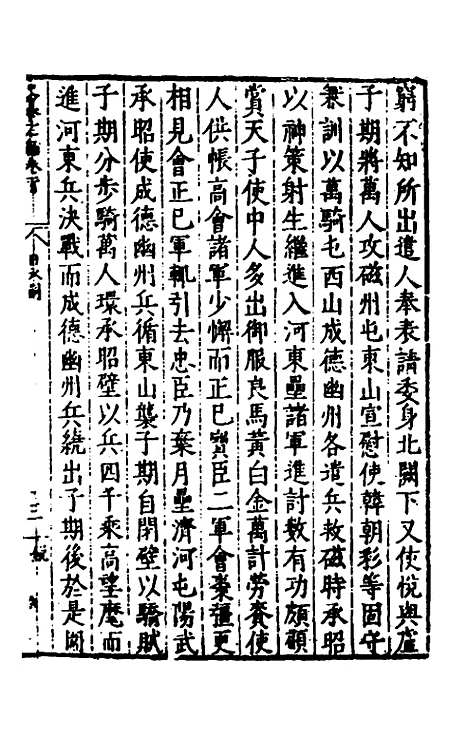 窮不知所出遣人奉表請委身北闕下又使悅與盧
子期將萬人攻磁州屯東山宣慰使韓朝彩等固守
兼訓以萬騎屯西山成德幽州各遣兵救磁時承昭
以神策射生繼進入河東壘諸軍進討數有功頗顧
賞天子使中人多出御服良馬黃白金萬計勞賚使
人供帳高會諸軍少懈而正已寶臣二軍會棗彊更
相見會正已軍輒引去忠臣乃棄月壘濟河屯陽武
承昭使成德幽州兵循東山襲子期自閉壁以驕賊
子期分步騎萬人環承昭壁以兵四千乘高望麾而
進河東兵決戰而成德幽州兵繞出子期後於是圍